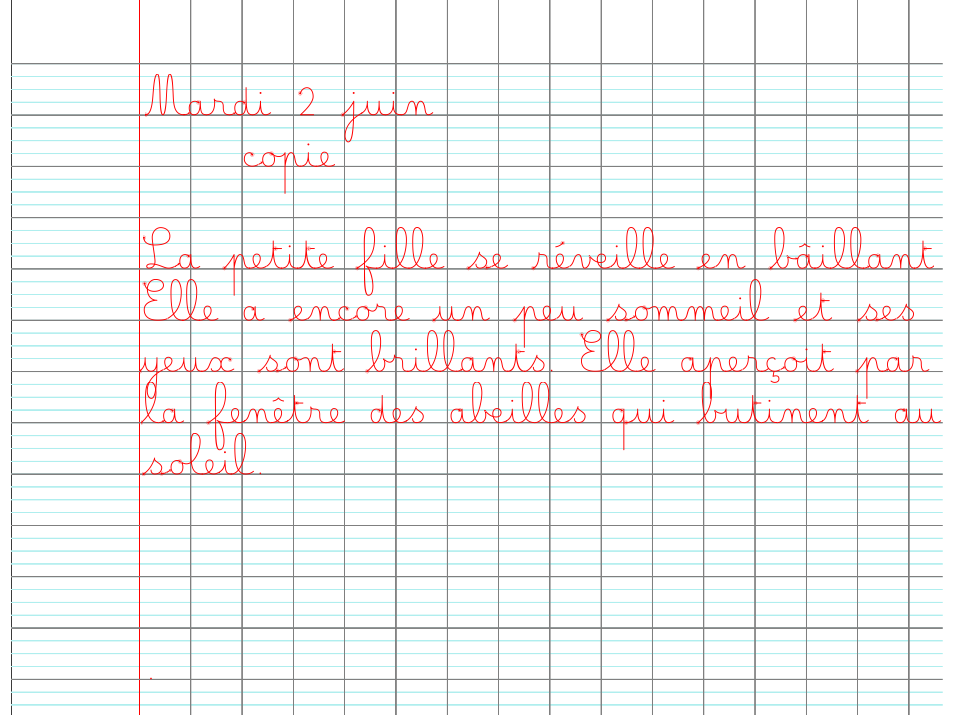 Mardi 2 juin
copie
La petite fille se réveille en bâillant
Elle a encore un peu sommeil et ses
yeux sont brillants. Elle aperçoit par
la fenêtre des abeilles qui butinent au
soleil.